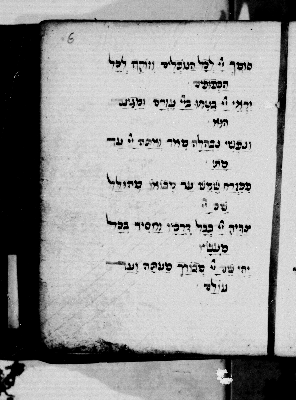 סומך יי לכל הנפלים וזוקף לכל
הכפופים
יראי יי בטחו ביי עזרם ומגנם
הוא
ונפשי נבהלה מאד ואתה יי עד
מתי
ממזרח שמש עד מבואו מהולל
שם יי
צדיק יי בכל דרכיו וחסיד בכל
מעשיו
יהי שם יי מבורך מעתה ועד
עולם